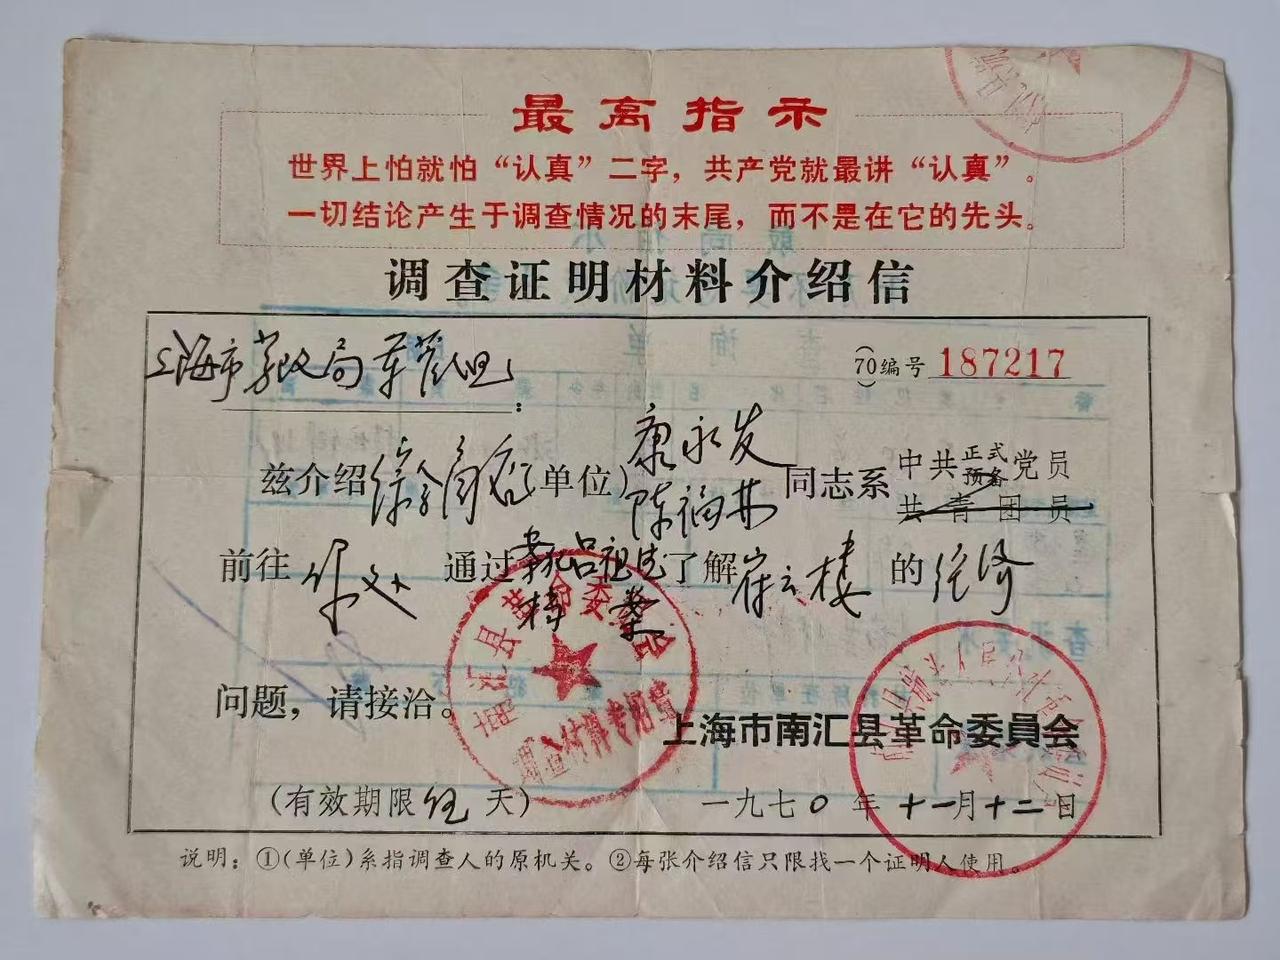 最高指示
世界上怕就怕“认真”二字，共产党就最讲“认真”。
一切结论产生于调查情况的末尾，而不是在它的先头。
调查证明材料介绍信
上海市劳改局军管组：
(70)编号 187217
兹介绍（单位）康永发 陈福林 同志系 中共正式预备党员 共青团员
前往 你处 通过 了解 崔云楼 的 经济
问题，请接洽。
南汇县革命委员会
调查材料专用章
上海市南汇县革命委員会
（有效期限伍天）
一九七〇年十一月十二日
说明：①（单位）系指调查人的原机关。②每张介绍信只限找一个证明人使用。